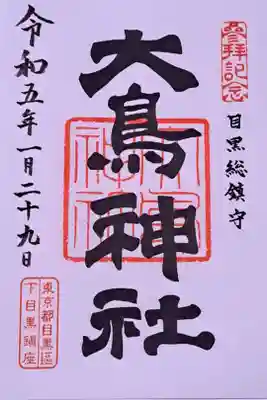 參拜記念
目黒総鎮守
大鳥神社
令和五年一月二十九日
東京都目黒區
下目黒鎮座